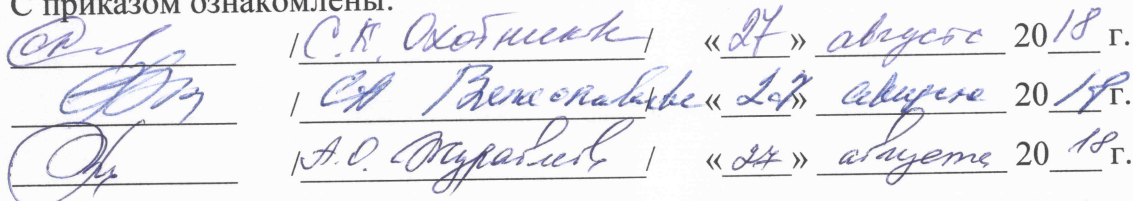 С приказом ознакомлены:
/ С.К. Охотник / «27» августа 2018 г.
/ СА «27» августа 2018 г.
/ А.О. Журавлев / «27» августа 2018 г.